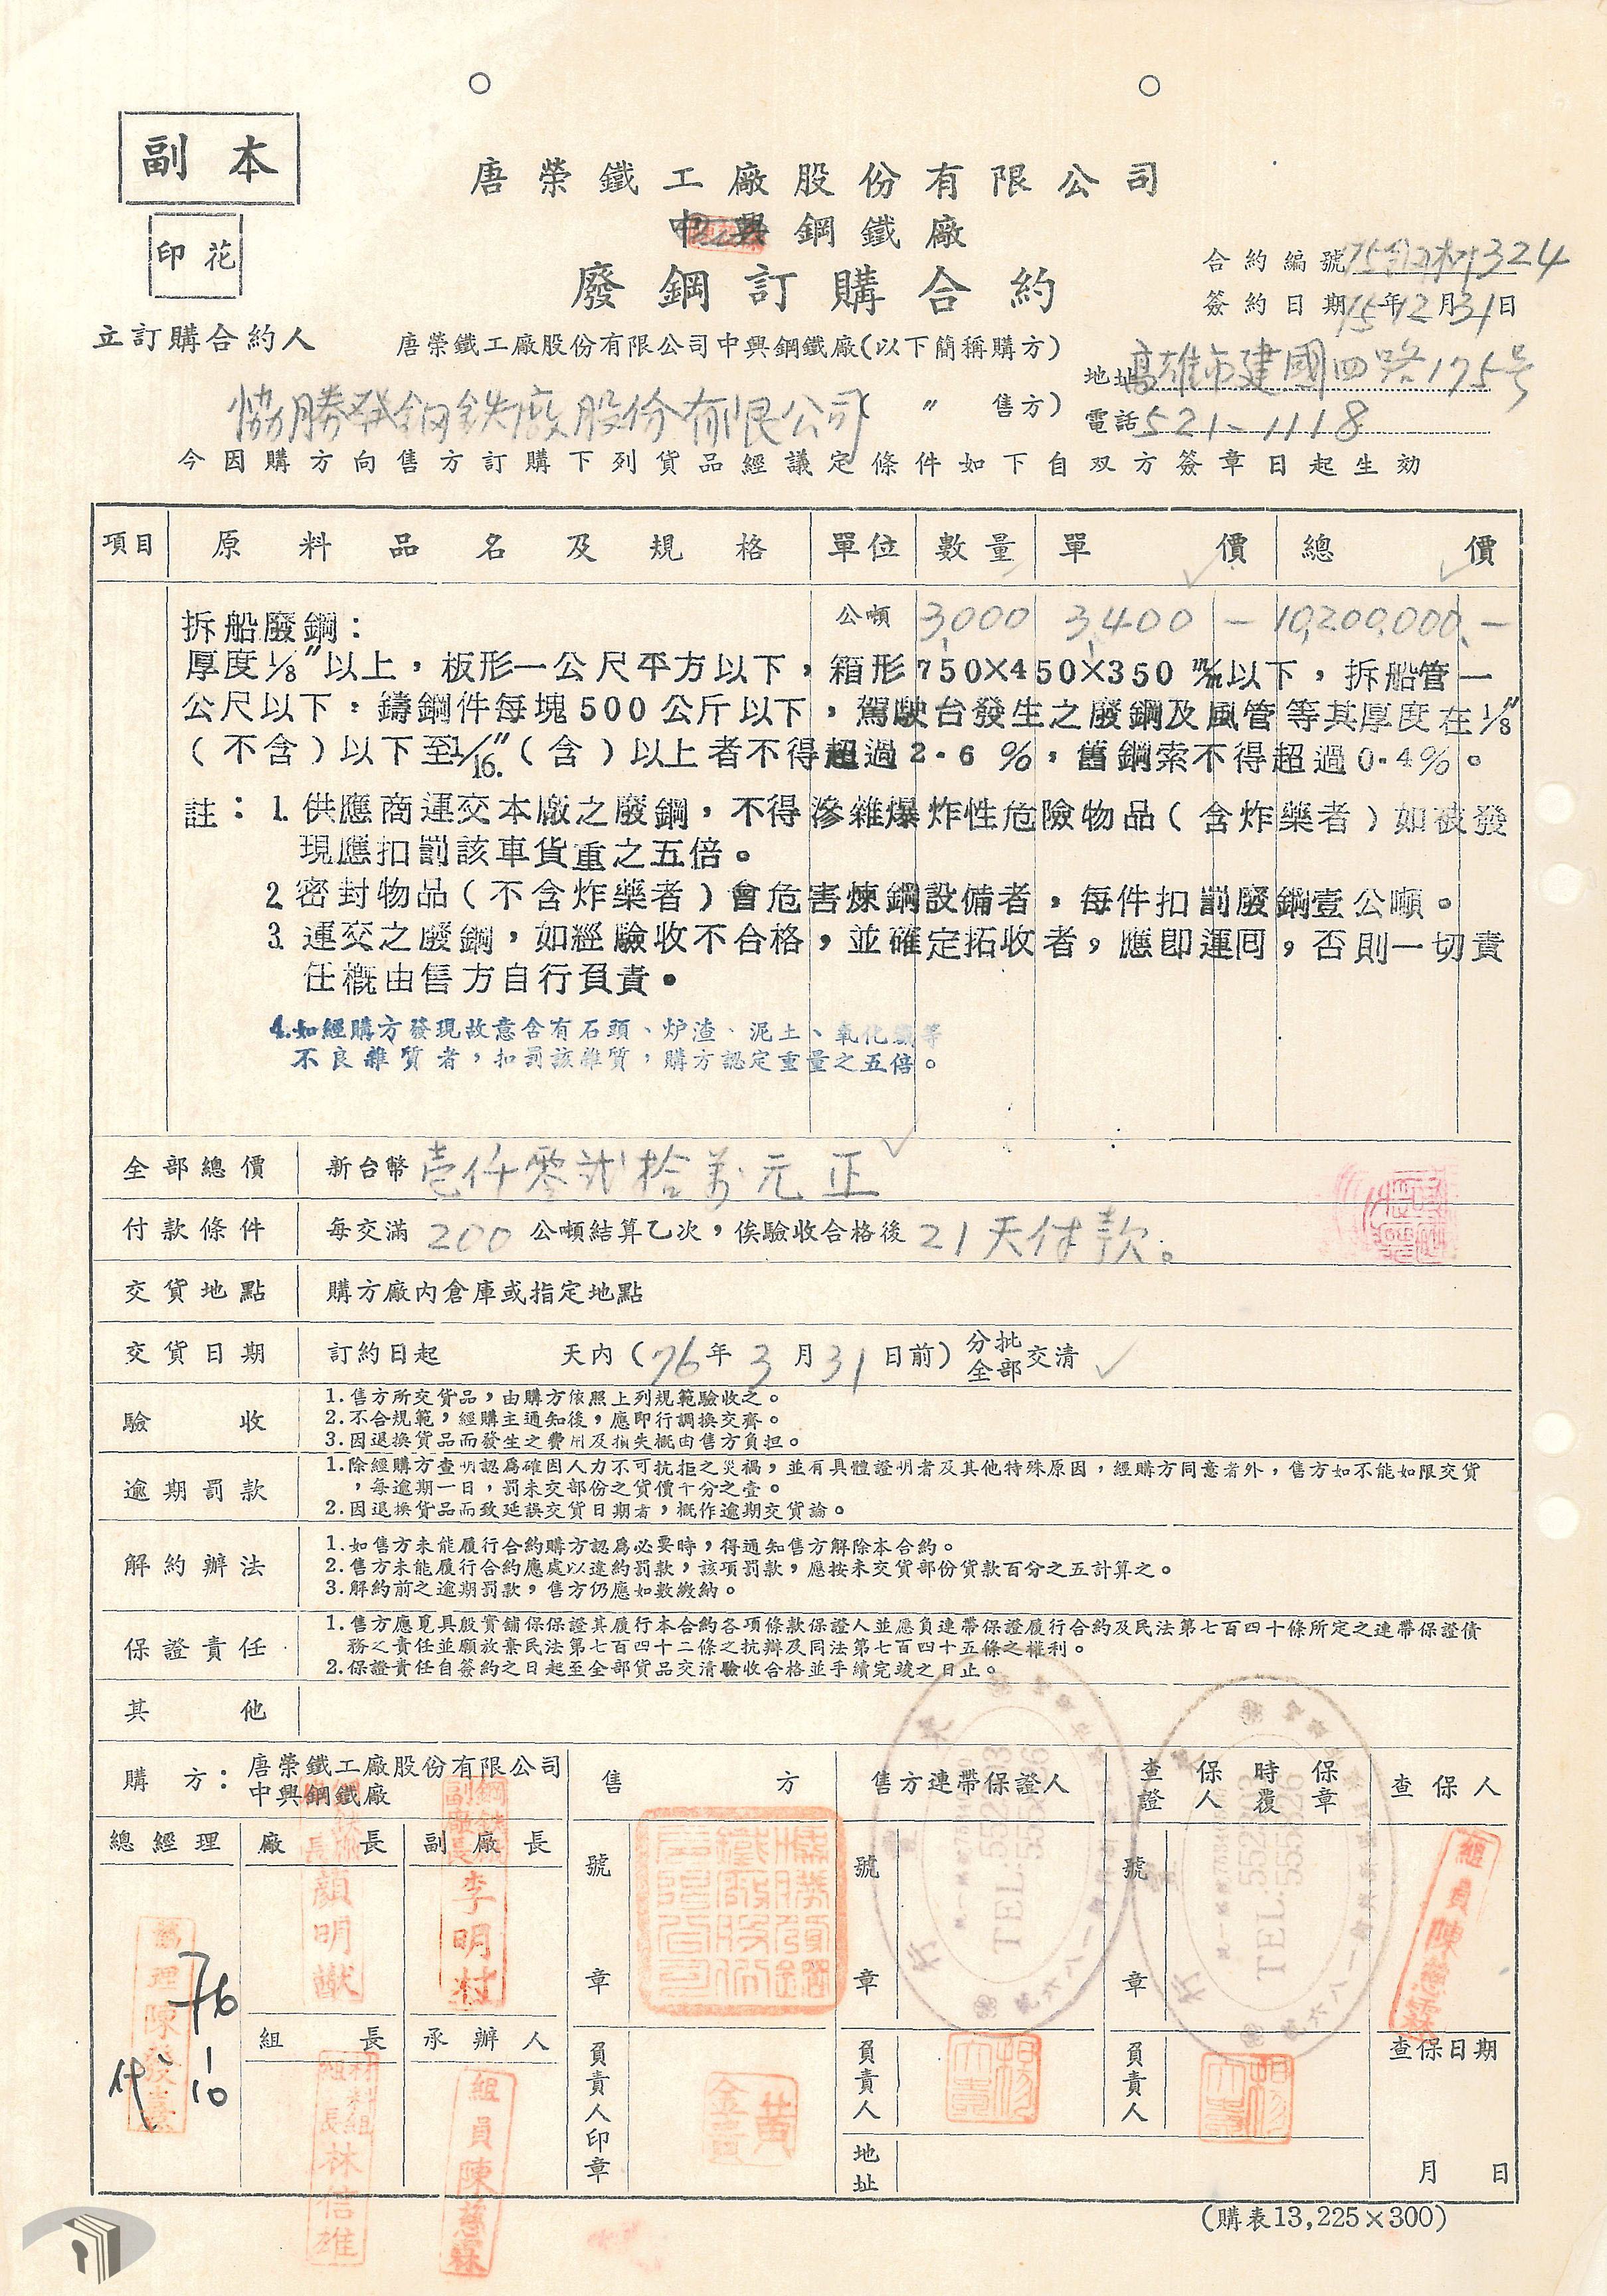 副本
印花
唐榮鐵工廠股份有限公司
中興鋼鐵廠
廢鋼訂購合約
合約編號75 324
簽約日期75年12月31日
立訂購合約人 唐榮鐵工廠股份有限公司中興鋼鐵廠(以下簡稱購方)
協勝發鋼鉄廠股份有限公司( 〃 售方)
地址高雄市建國四路175号
電話521-1118
今因購方向售方訂購下列貨品經議定條件如下自双方簽章日起生効
項目 原料品名及規格 單位 數量 單價 總價
拆船廢鋼: 公噸 3,000 3,400 - 10,200,000.-
厚度1/8"以上,板形一公尺平方以下,箱形750×450×350 m/m以下,拆船管一
公尺以下,鑄鋼件每塊500公斤以下,駕駛台發生之廢鋼及風管等其厚度在1/8"
(不含)以下至1/16"(含)以上者不得超過2.6%,舊鋼索不得超過0.4%。
註:1.供應商運交本廠之廢鋼,不得滲雜爆炸性危險物品(含炸藥者)如被發
現應扣罰該車貨重之五倍。
2.密封物品(不含炸藥者)會危害煉鋼設備者,每件扣罰廢鋼壹公噸。
3.運交之廢鋼,如經驗收不合格,並確定拓收者,應即運囘,否則一切責
任概由售方自行負責。
4.如經購方發現故意含有石頭、炉渣、泥土、氧化鐵等
不良雜質者,扣罰該雜質,購方認定重量之五倍。
全部總價 新台幣壹仟零貳拾萬元正
付款條件 每交滿200公噸結算乙次,俟驗收合格後21天付款。
交貨地點 購方廠內倉庫或指定地點
交貨日期 訂約日起 天內(76年3月31日前)分批全部交清
驗收 1.售方所交貨品,由購方依照上列規範驗收之。
2.不合規範,經購主通知後,應即行調換交齊。
3.因退換貨品而發生之費用及損失概由售方負担。
逾期罰款 1.除經購方查明認為確因人力不可抗拒之災禍,並有具體證明者及其他特殊原因,經購方同意者外,售方如不能如限交貨
,每逾期一日,罰未交部份之貨價千分之壹。
2.因退換貨品而致延誤交貨日期者,概作逾期交貨論。
解約辦法 1.如售方未能履行合約購方認為必要時,得通知售方解除本合約。
2.售方未能履行合約應處以違約罰款,該項罰款,應按未交貨部份貨款百分之五計算之。
3.解約前之逾期罰款,售方仍應如數繳納。
保證責任 1.售方應覓具殷實舖保保證其履行本合約各項條款保證人並應負連帶保證履行合約及民法第七百四十條所定之連帶保證債
務之責任並願放棄民法第七百四十二條之抗辯及同法第七百四十五條之權利。
2.保證責任自簽約之日起至全部貨品交清驗收合格並手續完竣之日止。
其他
購方:唐榮鐵工廠股份有限公司
中興鋼鐵廠
售方
售方連帶保證人
查保時保
證人覆章
查保人
總經理
廠長
副廠長
號章
號章
號章
顏明
副廠長李明村
TEL:
TEL:
組員陳慈霖
76
1
10
代
組長
承辦人
負責人印章
負責人
負責人
查保日期
材料組組長林信雄
組員陳慈霖
黃金
地址
月 日
(購表13,225×300)